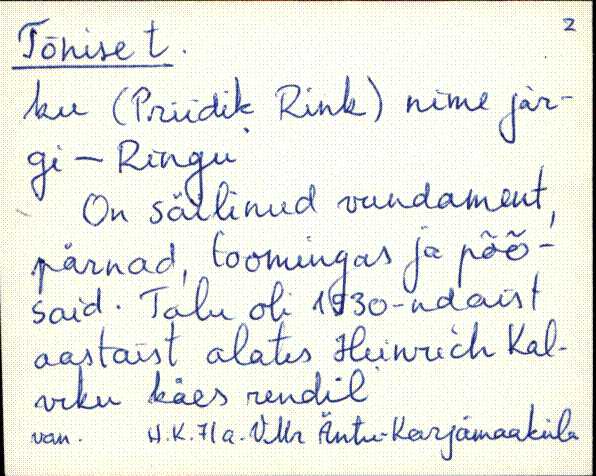 2
Tõnise t.
ku (Priidik Rink) nime jär-
gi – Ringu
On säilinud vundament,
pärnad, toomingas ja põõ-
said. Talu oli 1930-ndaist
aastaist alates Heinrich Kal-
viku käes rendil
van. H.K. 71a. V.Mr Äntu-Karjamaaküla